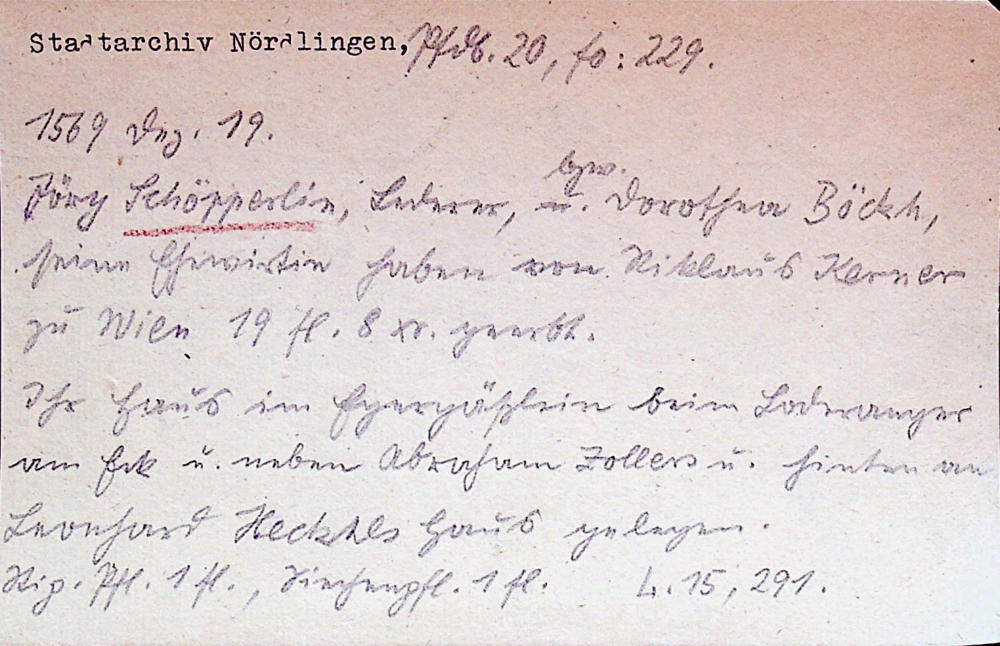 Stadtarchiv Nördlingen, Pfdb. 20, fo: 229.
1569 Dez. 19.
bzw.
Jörg Schöpperlin, Lederer, u. Dorothea Böckh,
seine Ehewirtin haben von Niklaus Kerner
zu Wien 19 fl. 8 xr. geerbt.
Ihr Haus im Egergäßlein beim Loderanger
am Eck u. neben Abraham Zollers u. hinten an
Leonhard Heckhls Haus gelegen.
Pfl. 1 fl., Siechenpfl. 1 fl. L. 15, 291.